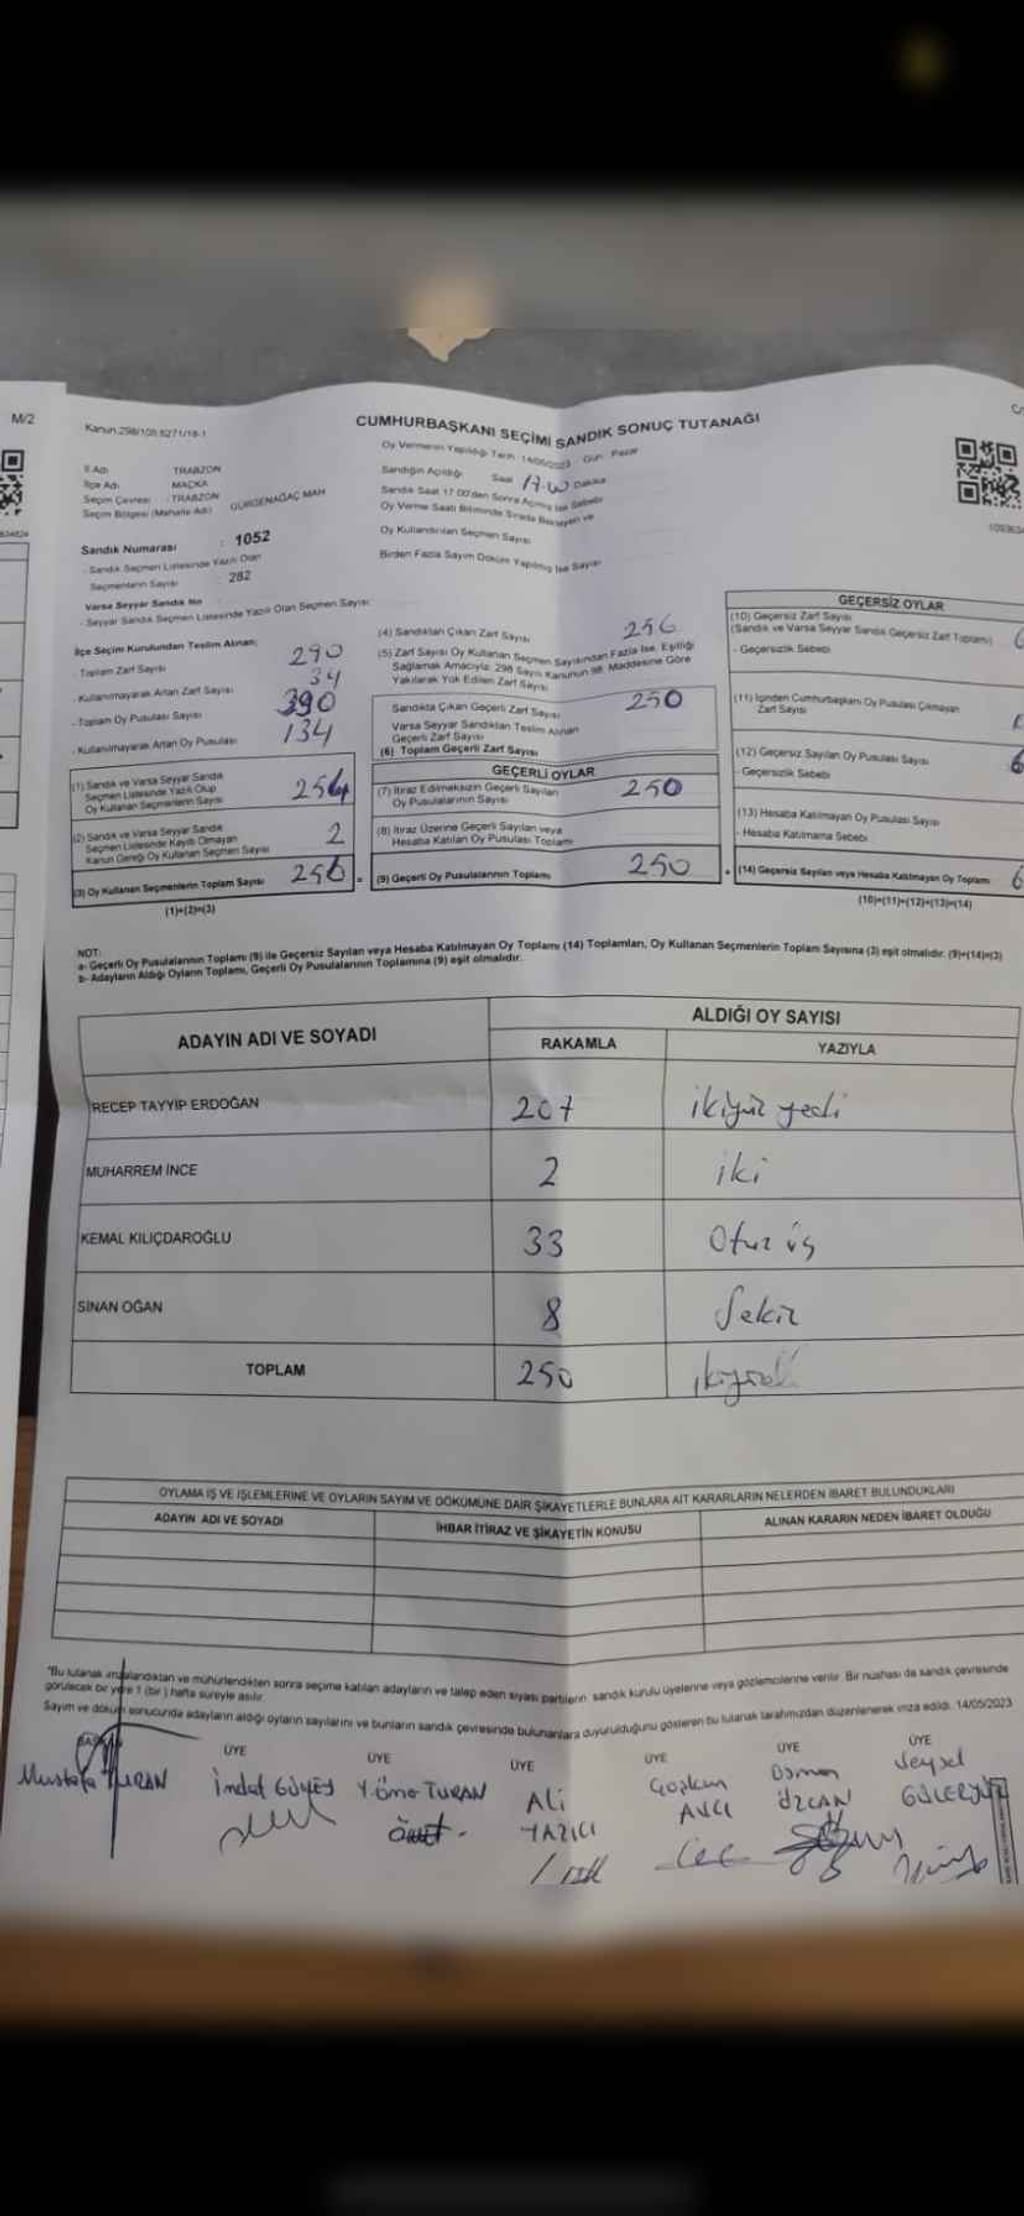 M/2
Kanun:298/105
CUMHURBAŞKANI SEÇİMİ SANDIK SONUÇ TUTANAĞI
Oy Vermenin Yapıldığı Tarih: 14/05/2023 Gün: Pazar
İl Adı TRABZON
İlçe Adı MAÇKA
Seçim Çevresi : TRABZON
Seçim Bölgesi (Mahalle Adı) GÜRGENAĞAÇ MAH
Sandığın Açıldığı Saat 17.00 Dakika
Sandık Saat 17:00'den Sonra Açılmış İse Sebebi
Oy Verme Saati Bitiminde Sırada Bekleyen ve
Oy Kullandırılan Seçmen Sayısı
Birden Fazla Sayım Döküm Yapılmış İse Sayısı
Sandık Numarası : 1052
- Sandık Seçmen Listesinde Yazılı Olan
Seçmenlerin Sayısı 282
Varsa Seyyar Sandık No
- Seyyar Sandık Seçmen Listesinde Yazılı Olan Seçmen Sayısı
İlçe Seçim Kurulundan Teslim Alınan;
- Toplam Zarf Sayısı 290
- Kullanılmayarak Artan Zarf Sayısı 34
- Toplam Oy Pusulası Sayısı 390
- Kullanılmayarak Artan Oy Pusulası 134
(1) Sandık ve Varsa Seyyar Sandık
Seçmen Listesinde Yazılı Olup
Oy Kullanan Seçmenlerin Sayısı 254
(2) Sandık ve Varsa Seyyar Sandık
Seçmen Listesinde Kayıtlı Olmayan
Kanun Gereği Oy Kullanan Seçmen Sayısı 2
(3) Oy Kullanan Seçmenlerin Toplam Sayısı 256
(1)+(2)=(3)
(4) Sandıktan Çıkan Zarf Sayısı 256
(5) Zarf Sayısı Oy Kullanan Seçmen Sayısından Fazla İse, Eşitliği
Sağlamak Amacıyla 298 Sayılı Kanunun 98. Maddesine Göre
Yakılarak Yok Edilen Zarf Sayısı
Sandıkta Çıkan Geçerli Zarf Sayısı 250
Varsa Seyyar Sandıktan Teslim Alınan
Geçerli Zarf Sayısı
(6) Toplam Geçerli Zarf Sayısı
GEÇERLİ OYLAR
(7) İtiraz Edilmeksizin Geçerli Sayılan
Oy Pusulalarının Sayısı 250
(8) İtiraz Üzerine Geçerli Sayılan veya
Hesaba Katılan Oy Pusulası Toplamı
(9) Geçerli Oy Pusulalarının Toplamı 250
GEÇERSİZ OYLAR
(10) Geçersiz Zarf Sayısı
(Sandık ve Varsa Seyyar Sandık Geçersiz Zarf Toplamı)
- Geçersizlik Sebebi
(11) İçinden Cumhurbaşkanı Oy Pusulası Çıkmayan
Zarf Sayısı
(12) Geçersiz Sayılan Oy Pusulası Sayısı 6
- Geçersizlik Sebebi
(13) Hesaba Katılmayan Oy Pusulası Sayısı
- Hesaba Katılmama Sebebi
(14) Geçersiz Sayılan veya Hesaba Katılmayan Oy Toplamı 6
(10)+(11)+(12)+(13)=(14)
NOT:
a- Geçerli Oy Pusulalarının Toplamı (9) ile Geçersiz Sayılan veya Hesaba Katılmayan Oy Toplamı (14) Toplamları, Oy Kullanan Seçmenlerin Toplam Sayısına (3) eşit olmalıdır. (9)+(14)=(3)
b- Adayların Aldığı Oyların Toplamı, Geçerli Oy Pusulalarının Toplamına (9) eşit olmalıdır.
ADAYIN ADI VE SOYADI
ALDIĞI OY SAYISI
RAKAMLA YAZIYLA
RECEP TAYYIP ERDOĞAN 207 ikiyüz yedi
MUHARREM İNCE 2 iki
KEMAL KILIÇDAROĞLU 33 Otuz üç
SİNAN OĞAN 8 Sekiz
TOPLAM 250
OYLAMA İŞ VE İŞLEMLERİNE VE OYLARIN SAYIM VE DÖKÜMÜNE DAİR ŞİKAYETLERLE BUNLARA AİT KARARLARIN NELERDEN İBARET BULUNDUKLARI
ADAYIN ADI VE SOYADI İHBAR İTİRAZ VE ŞİKAYETİN KONUSU ALINAN KARARIN NEDEN İBARET OLDUĞU
"Bu tutanak imzalandıktan ve mühürlendikten sonra seçime katılan adayların ve talep eden siyasi partilerin sandık kurulu üyelerine veya gözlemcilerine verilir. Bir nüshası da sandık çevresinde
görülecek bir yere 1 (bir) hafta süreyle asılır.
Sayım ve döküm sonucunda adayların aldığı oyların sayılarını ve bunların sandık çevresinde bulunanlara duyurulduğunu gösteren bu tutanak tarafımızdan düzenlenerek imza edildi. 14/05/2023
ÜYE ÜYE ÜYE ÜYE ÜYE ÜYE
Mustafa TURAN
İmdat GÜNEŞ
TURAN
Ali YAZICI
AVCI
Osman ÖZCAN
Veysel